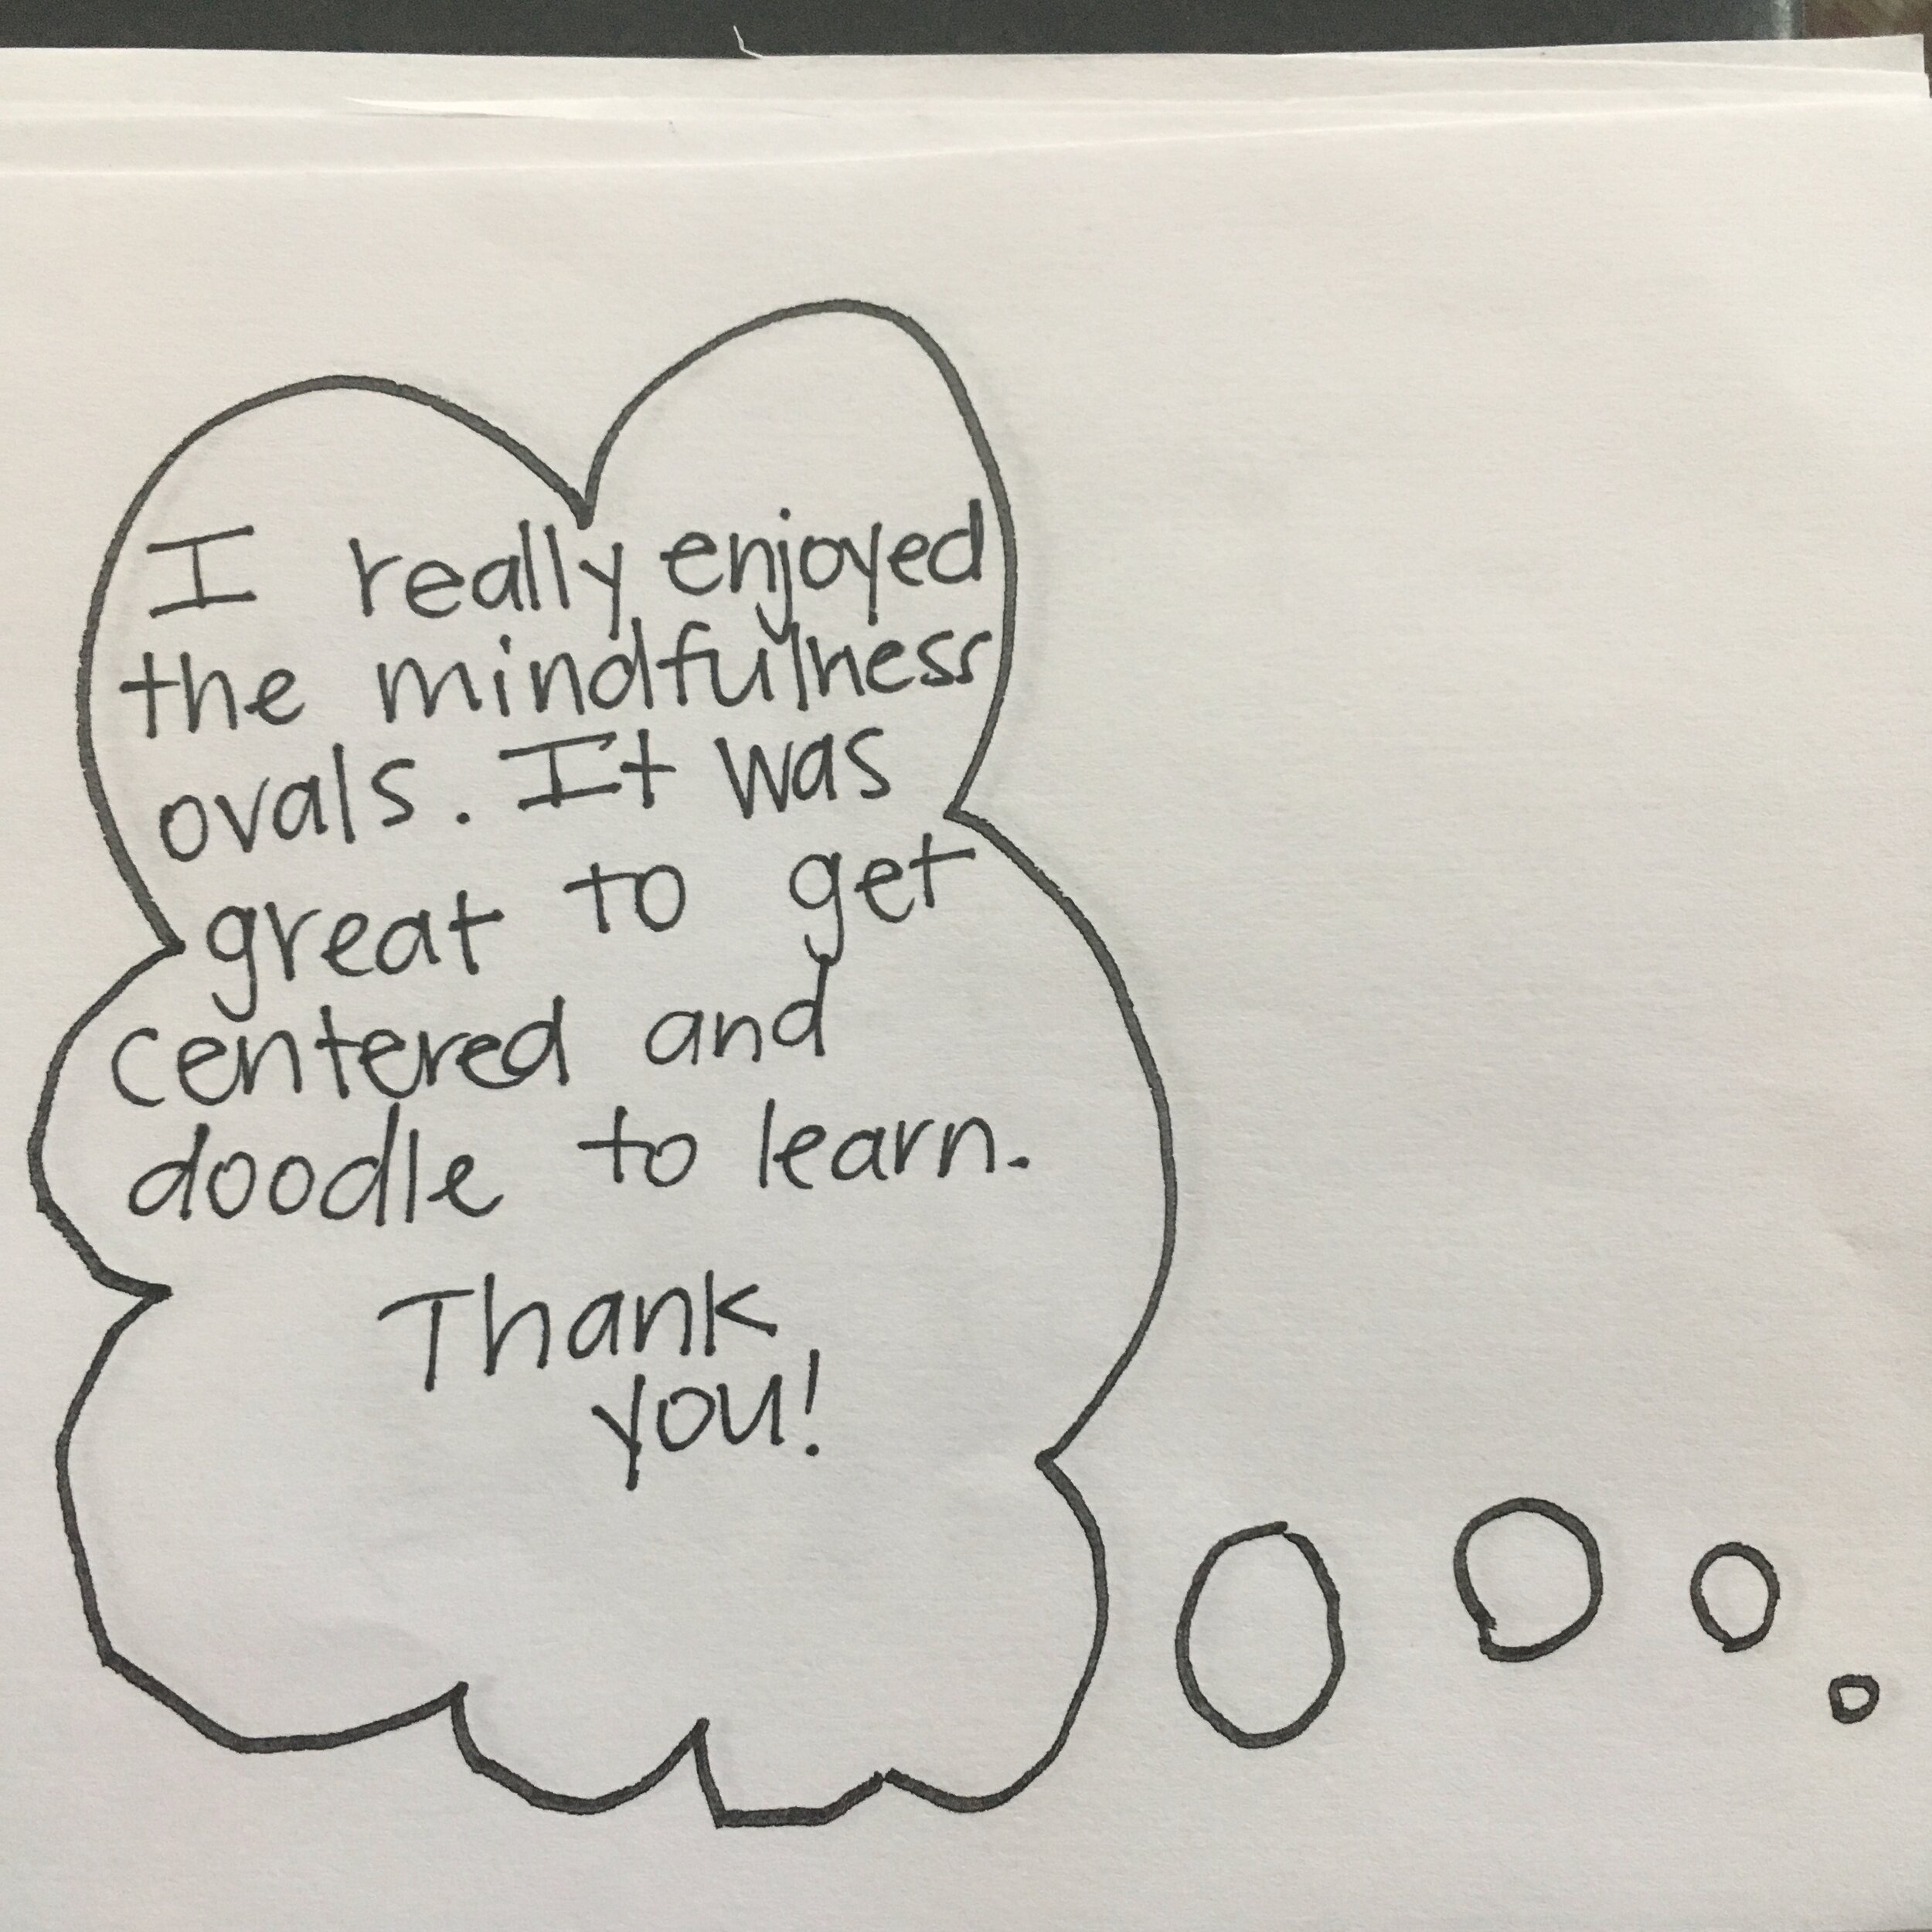 I really enjoyed
the mindfulness
ovals. It was
great to get
centered and
doodle to learn.
Thank
you!